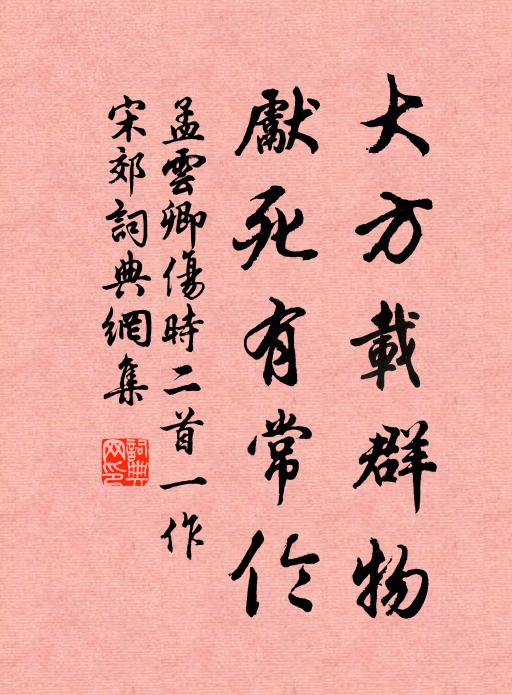 大方載群物
獻死有常伦
孟雲卿傷時二首一作
宋郊詞典網集
詞典
网印